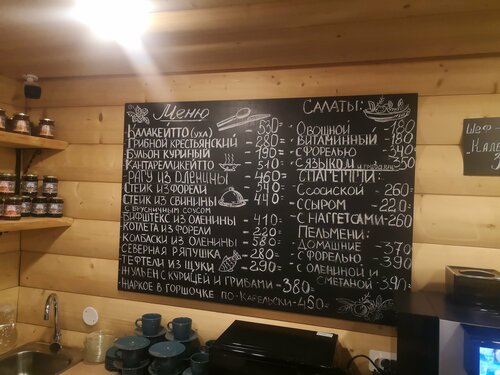 Меню
Калакейтто (уха) - 530
Грибной крестьянский - 280
Бульон куриный - 190
Кантареликейтто - 510
Рагу из оленины - 460
Стейк из форели - 540
Стейк из свинины - 440
с брусничным соусом
Бифштекс из оленины - 410
Котлета из форели - 220
Колбаски из оленины - 580
Северная ряпушка - 280
Тефтели из щуки - 290
Жульен с курицей и грибами - 380
Жаркое в горшочке по-карельски - 450
Салаты:
- Овощной 180
- Витаминный 180
- с форелью
- с языком и грибами 350
Спагетти:
- с сосиской 260
- с сыром - 220
- с наггетсами - 260
Пельмени:
- Домашние - 370
- с форелью - 390
- с олениной и
сметаной - 390